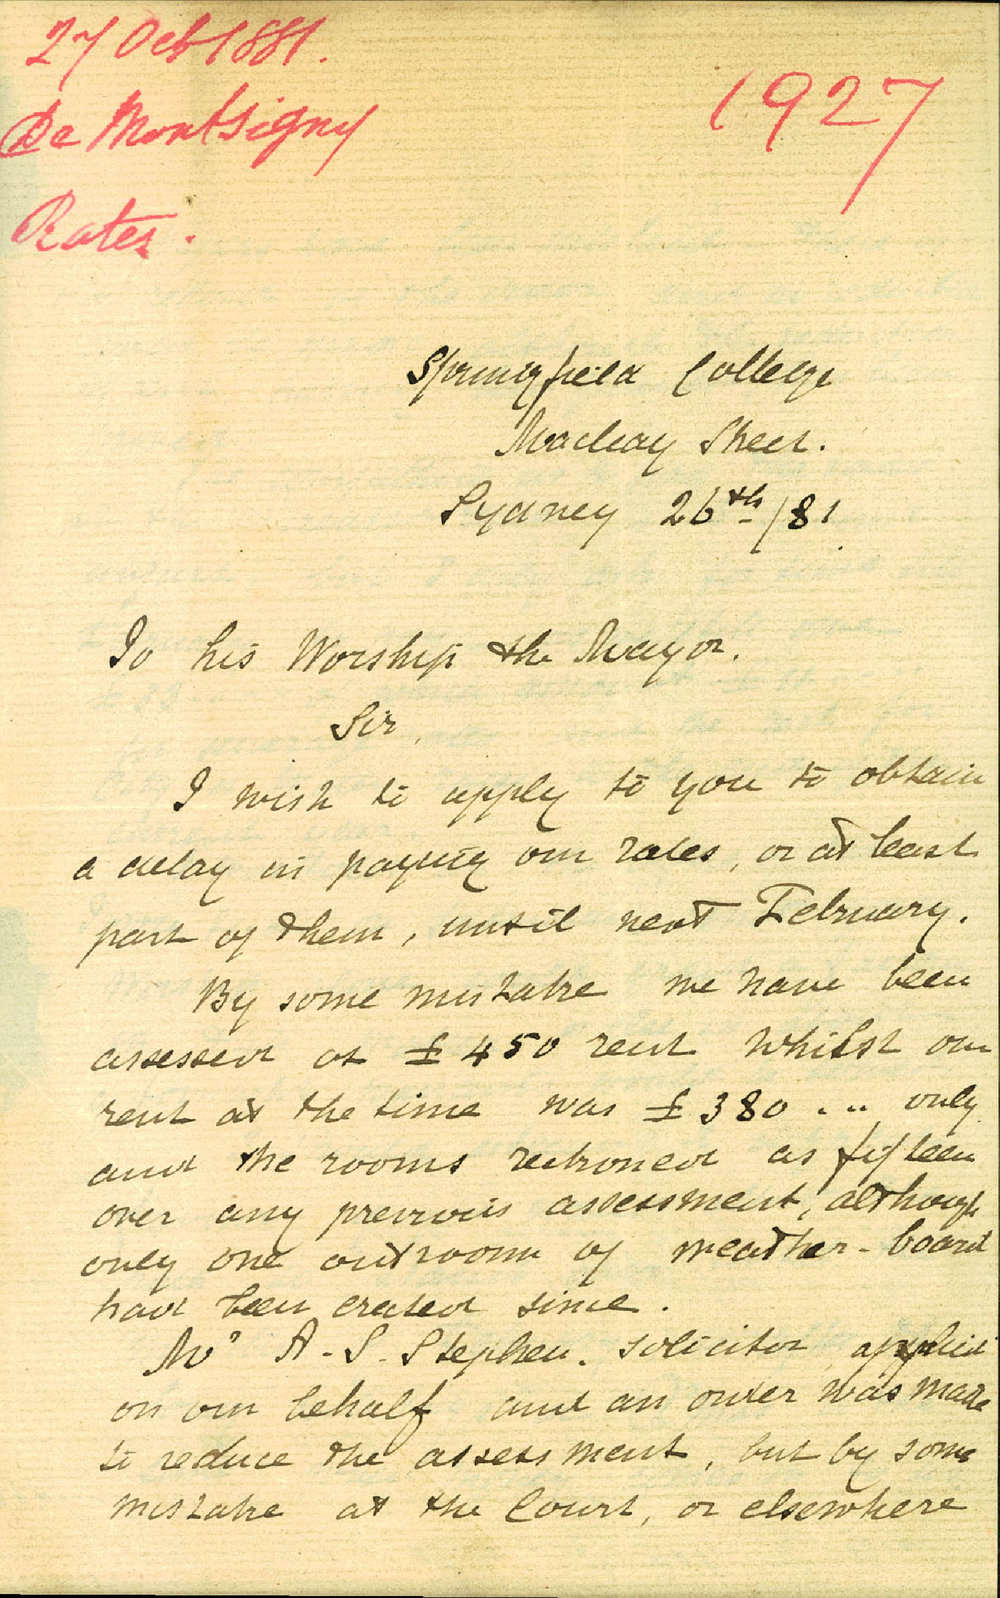 27 Oct 1881.
1927
De Montsigny
Rates.
Springfield College
Macleay Street.
Sydney 26th/81
To his Worship the Mayor.
Sir,
I wish to apply to you to obtain
a delay in paying our rates, or at least
part of them, until next February.
By some mistake we have been
assessed at £450 rent whilst our
rent at the time was £380 ... only
and the rooms reckoned as fifteen
over any previous assessment, although
only one outroom of weather-board
had been erected since.
Mr A-S-Stephen. solicitor, applied
on our behalf and an order was made
to reduce the assessment, but by some
mistake at the Court, or elsewhere